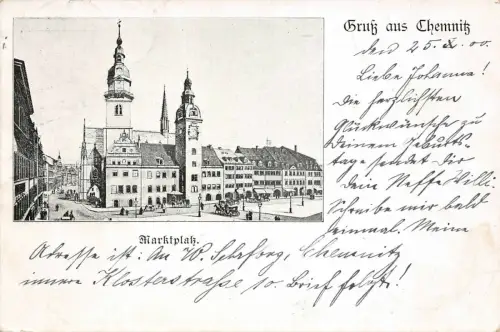 Gruß aus Chemnitz
den 25. X. 00.
Liebe Johanna!
Die herzlichsten
Glückwünsche zu
Deinem Geburts-
tage sendet Dir
Dein Neffe Willi
Schreibe mir bald
einmal. Meine
Marktplatz.
Adresse ist: An W. Chemnitz
innere Klosterstraße 10. Brief folgt!